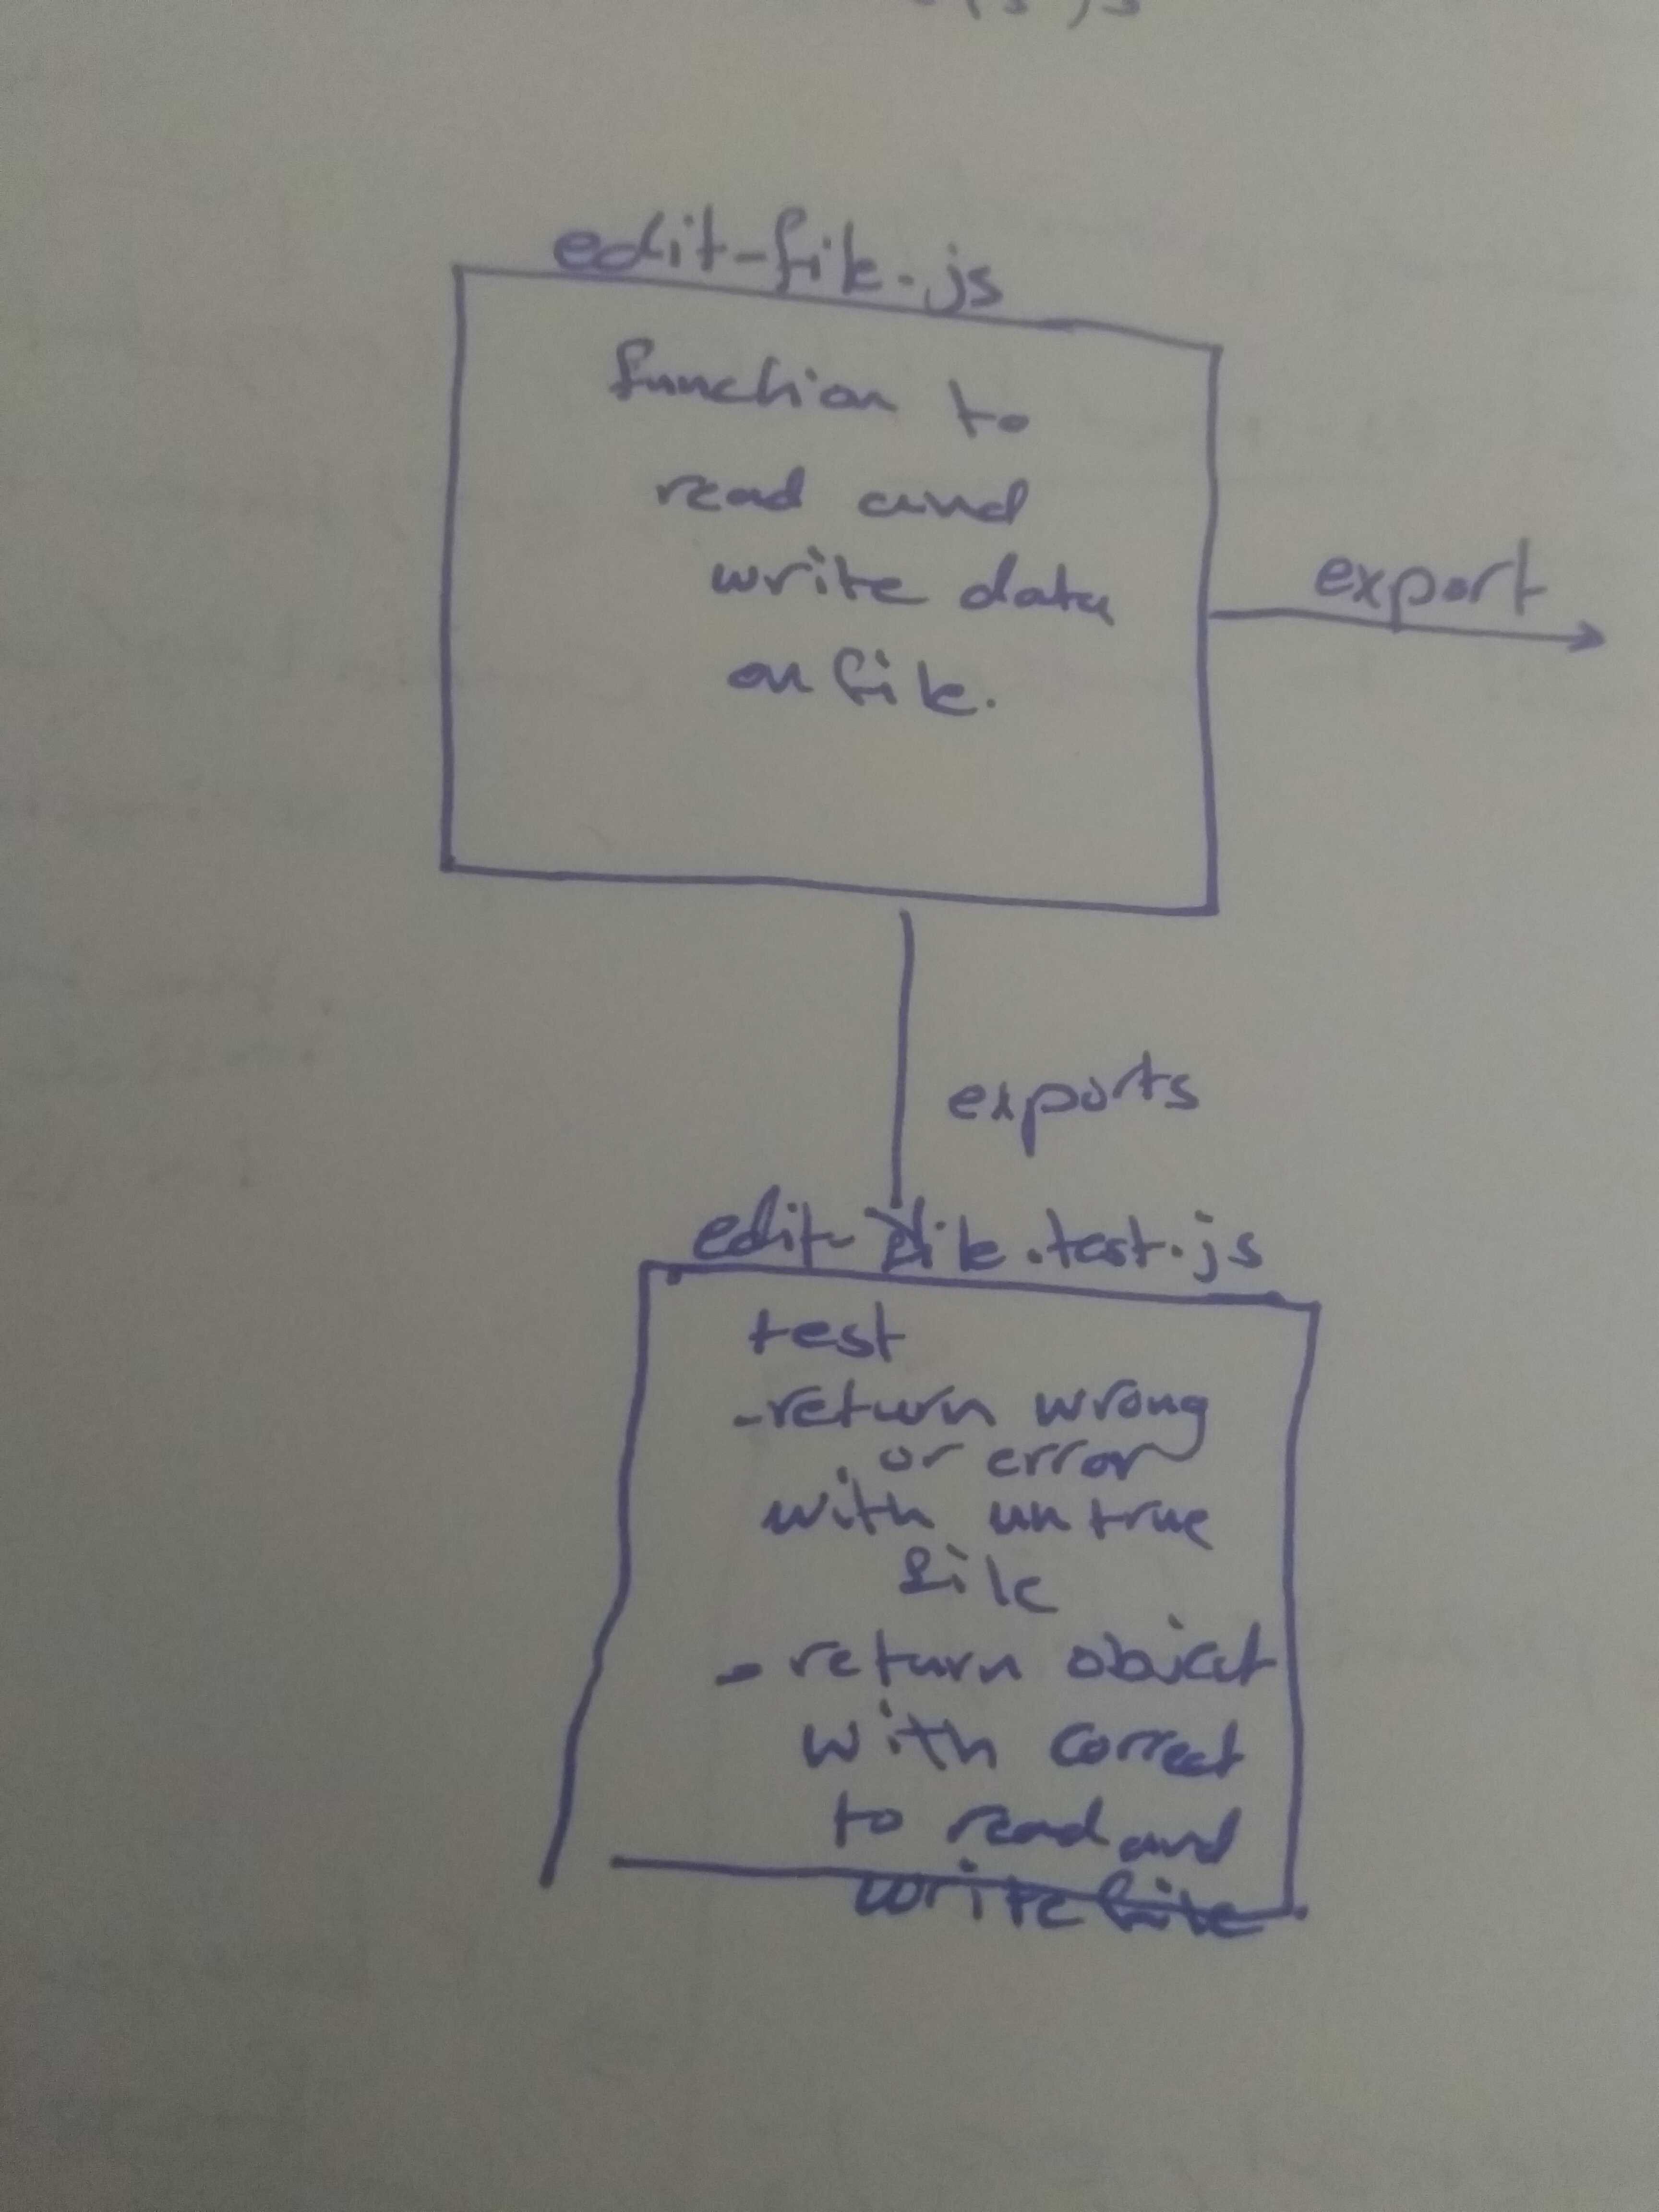 edit-file.js
function to
read and
write data
on file.
export
exports
edit-file.test.js
test
-return wrong
or error
with un true
file
- return object
with correct
to read and
write file